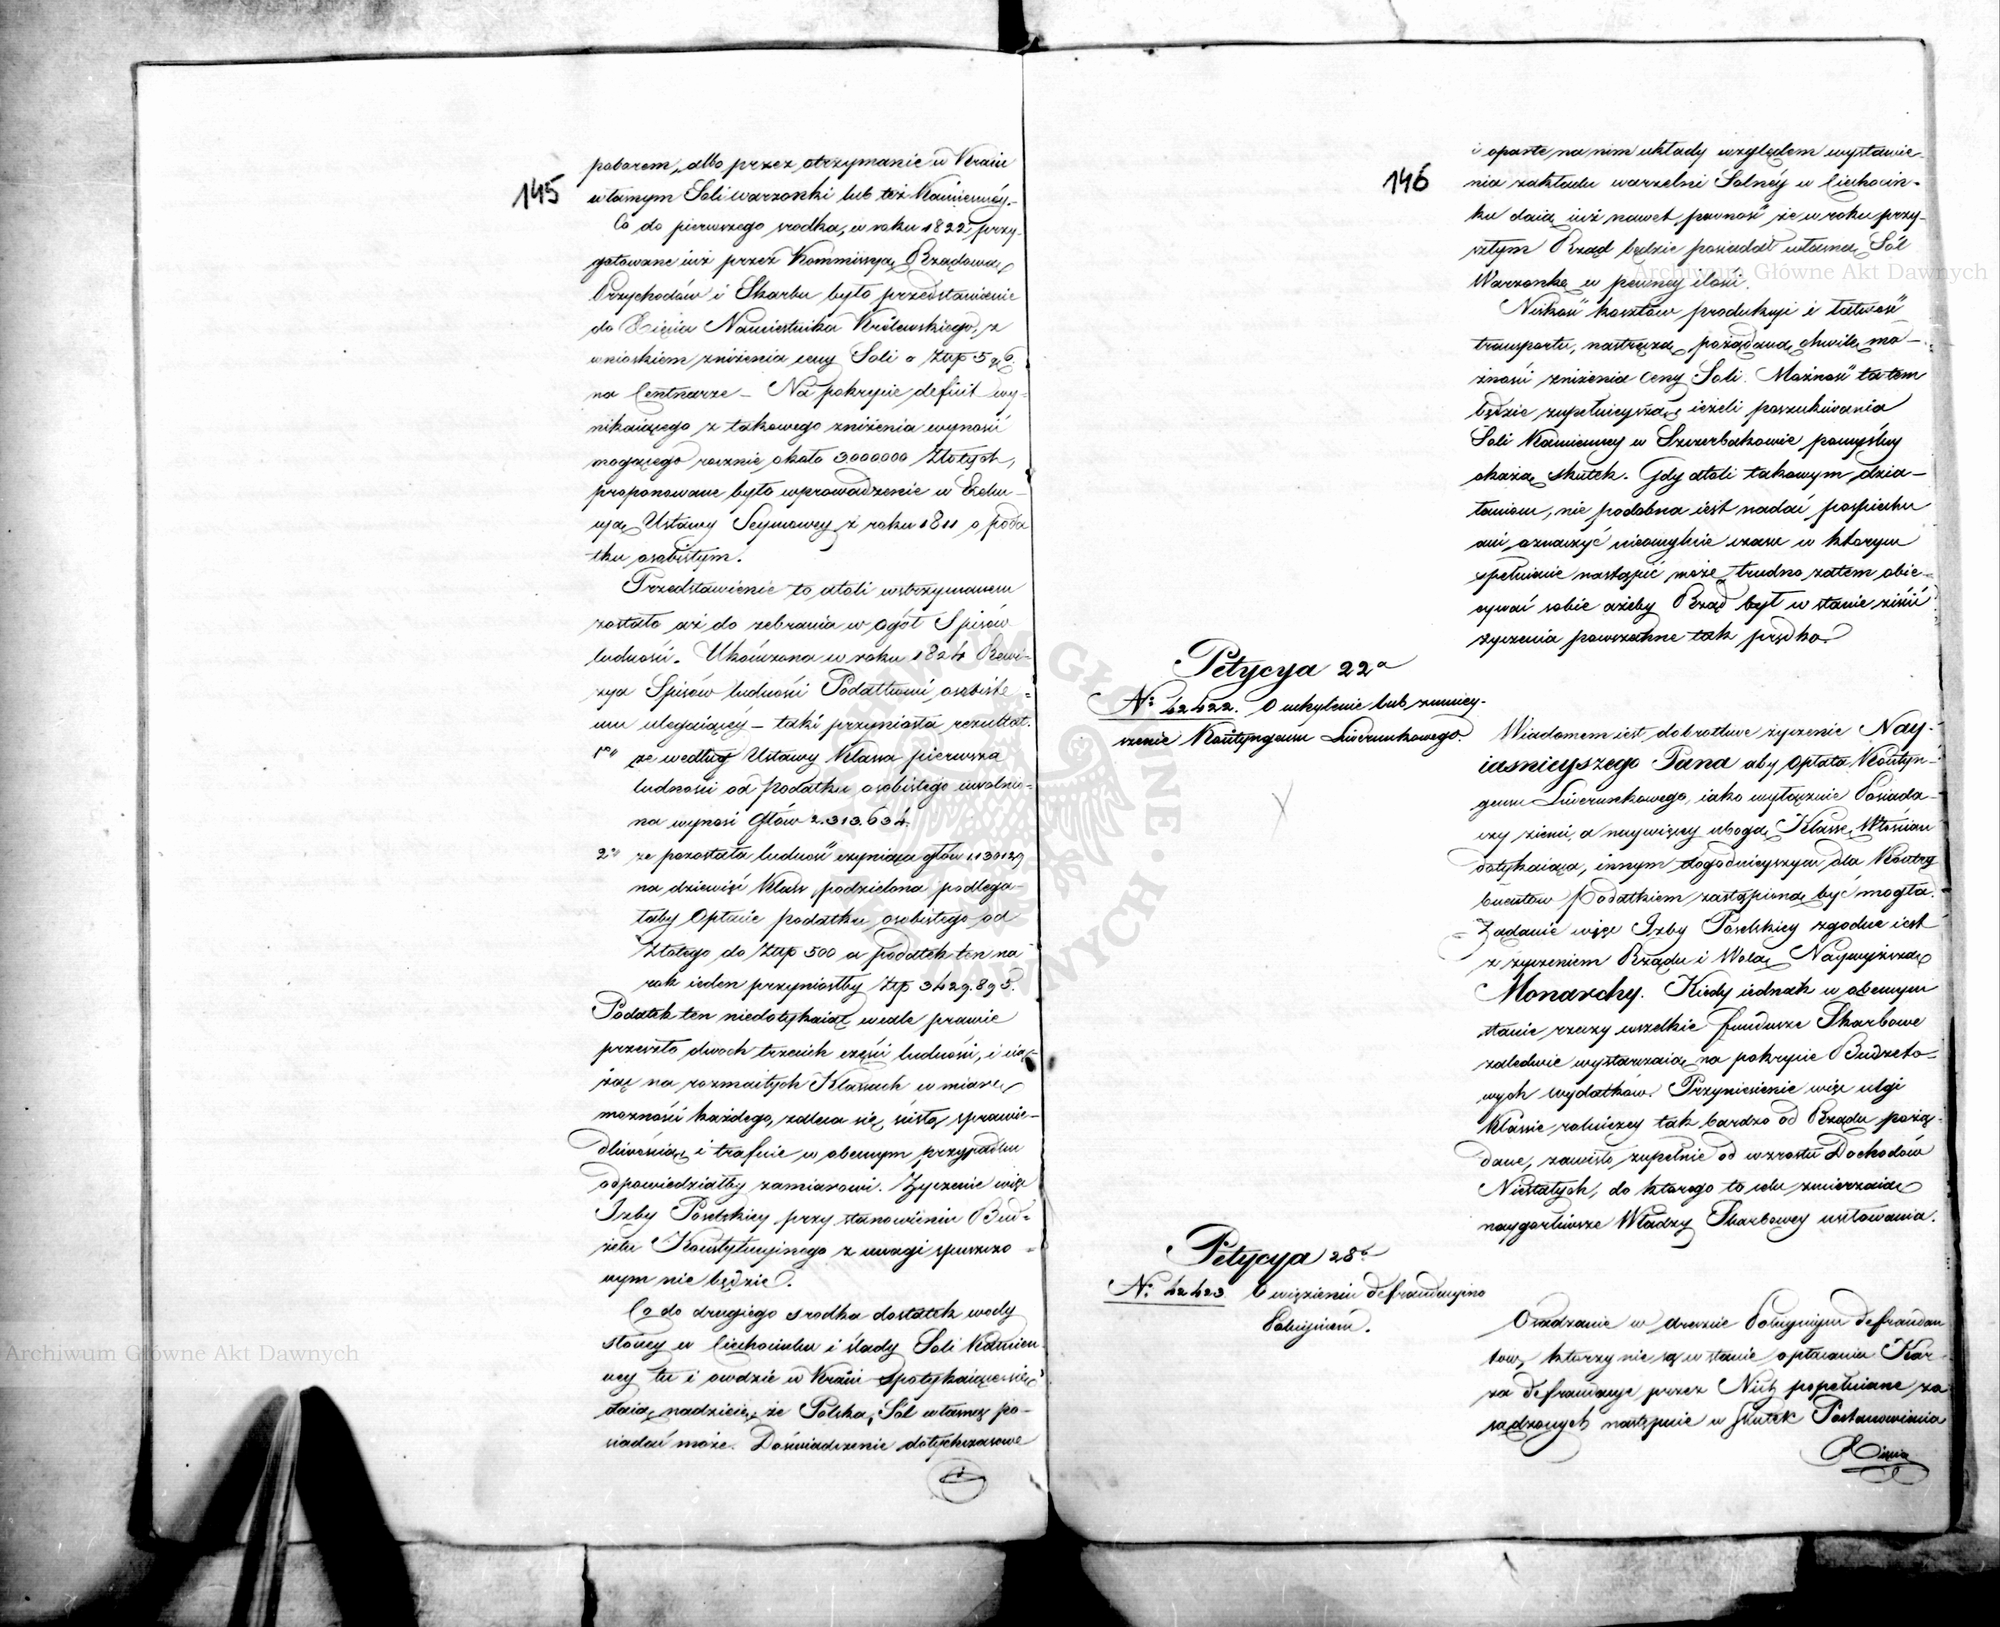 145
poborem, albo przez otrzymanie w Kraiu
własnym Soli warzonki lub też Kamienney.
Co do pierwszego srodka, w roku 1822 przy-
gotowane iuż przez Kommissyą Rządową
Przychodów i Skarbu było przedstawienie
do Xięcia Namiestnika Królewskiego, z
wnioskiem zniżenia ceny Soli o Złtp 5 g 6
na Centnarze – Na pokrycie deficit wy-
nikaiącego z takowego zniżenia wynosić
mogącego rocznie około 3000000 Złotych,
proponowane było wprowadzenie w Exeku-
cyą Ustawy Seymowey z roku 1811 o poda
tku osobistym.
Przedstawienie to atoli wstrzymanem
zostało aż do zebrania w ogół Spisów
ludności. Ukończona w roku 1824 Rewi-
zya Spisów ludności Podatkowi osobiste=
mu ulegaiącéy – taki przyniosła rezultat.
1mo że według Ustawy Klassa pierwsza
ludności od podatku osobistego uwolnio-
na wynosi Głów 2.313.634.
2do że pozostała ludność czyniąca głów 1130129
na dziewięć Klass podzielona podlega-
łaby Opłacie podatku osobistego od
Złotego do Złtp 500 a podatek ten na
rok ieden przyniosłby Złp 3429.895.
Podatek ten niedotykaiąc wcale prawie
przeszło dwóch trzecich części ludności, i cią-
żąc na rozmaitych Klassach w miarę
możności każdego, zaleca się ścisłą sprawie-
dliwością i trafnie w obecnym przypadku
odpowiedziałby zamiarowi. Życzenie więc
Izby Poselskiey przy stanowieniu Bud=
żetu Konstytucyinego z uwagi spuszczo=
nym nie będzie.
Co do drugiego srodka dostatek wody
słoney w Ciechocinku i ślady Soli Kamien
ney tu i owdzie w Kraiu spotykaiące się
daią nadzieię, że Polska, Sól własną po-
siadać może. Doświadczenie dotychczasowe
146
i oparte na nim układy względem wystawie-
nia zakładu warzelni Solnéy w Ciechocin-
ku daią iuż nawet pewność że w roku przy-
szłym Rząd będzie posiadał własną Sól
Warzonkę w pewney ilości.
Niskość kosztów produkcyi i łatwość
transportu, nastręczą pożądaną chwilę mo-
żności zniżenia ceny Soli. Możność ta tem
będzie zupełnieyszą, ieżeli poszukiwania
Soli Kamienney w Szczerbakowie pomyślny
okażą skutek. Gdy atoli takowym dzia-
łaniom, nie podobna iest nadać pospiechu
ani oznaczyć nieomylnie czasu w ktorym
spełnienie nastąpić może, trudno zatem obie-
cywać sobie ażeby Rząd był w stanie ziścić
życzenia powszechne tak prędko.
Petycya 22a
No 42422. O uchylenie lub zmniey-
szenie Kontyngensu Liwerunkowego.
Wiadomem iest dobrotliwe życzenie Nay-
iasnieyszego Pana aby Opłata Kontyn-
gensu Liwerunkowego, iako wyłącznie Posiada-
czy ziemi, a naywięcey ubogą Klassę Włościan
dotykaiąca, innym dogodnieyszym dla Kontry
buentów Podatkiem zastąpioną być mogła.
Żądanie więc Izby Poselskiey zgodne iest
z życzeniem Rządu i Wolą Naywyższą
Monarchy. Kiedy iednak w obecnym
stanie rzeczy wszelkie fundusze Skarbowe
zaledwie wystarczaią na pokrycie Budżeto-
wych wydatków. Przyniesienie więc ulgi
Klassie rolniczey tak bardzo od Rządu pożą-
dane, zawisło zupełnie od wzrostu Dochodów
Niestałych, do ktorego to celu zmierzaią
naygorliwsze Władzy Skarbowey usiłowania.
Petycya 23a
No 42423 O więzieniu defraudacyino
Policyinem.
Osadzanie w areszcie Policyinym defraudan
tów, ktorzy nie są w stanie opłacania Kar
za defraudacye przez Nich popełniane za
sądzonych następuie w skutek Postanowienia
Xięcia
Archiwum Główne Akt Dawnych
Archiwum Główne Akt Dawnych